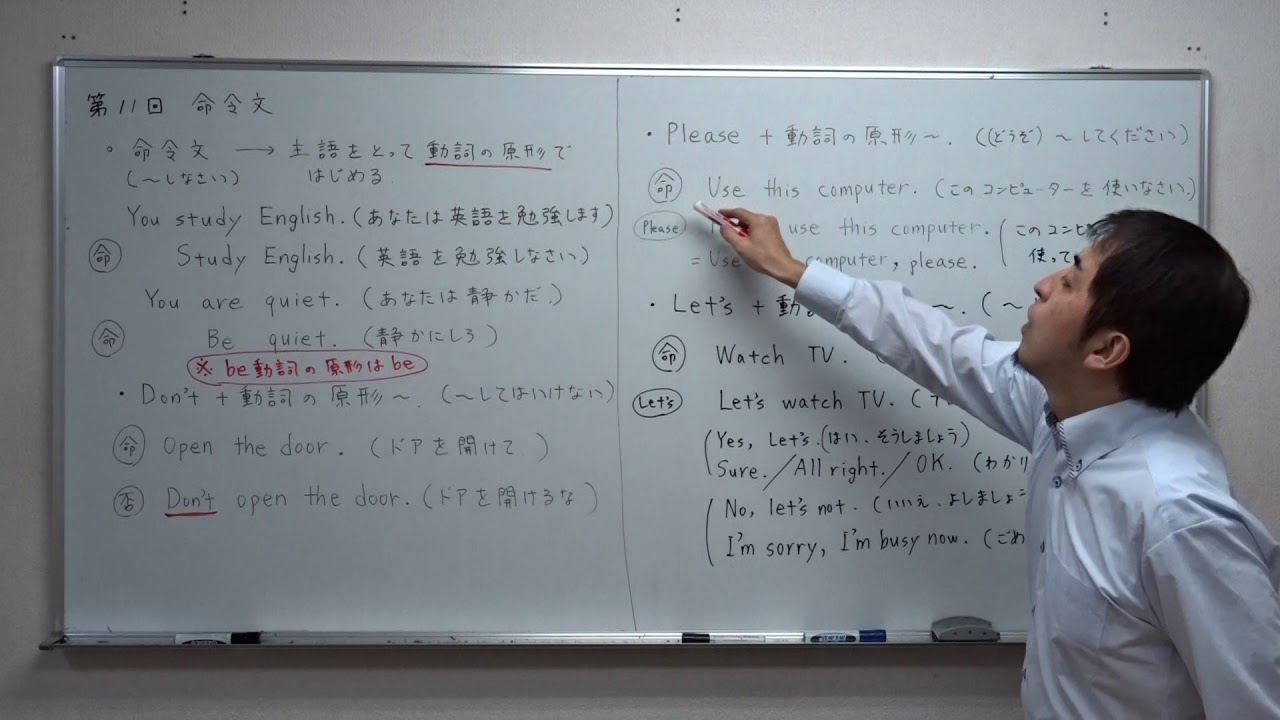 第11回 命令文
。命令文 → 主語をとって動詞の原形で
(〜しなさい) はじめる.
You study English.(あなたは英語を勉強します)
命 Study English.(英語を勉強しなさい.)
You are quiet.(あなたは静かだ.)
命 Be quiet.(静かにしろ)
※ be動詞の原形はbe
・Don't + 動詞の原形〜.(〜してはいけない)
命 Open the door.(ドアを開けて.)
否 Don't open the door.(ドアを開けるな)
・Please + 動詞の原形〜.((どうぞ)〜してください)
命 Use this computer.(このコンピューターを使いなさい)
Please use this computer.(このコンピ
= Use computer, please. 使って
・Let's + 動 〜.(〜
命 Watch TV.(
Let's Let's watch TV.(
Yes, Let's.(はい.そうしましょう)
Sure./All right./OK.(わかり
No, let's not.(いいえ.よしましょう
I'm sorry, I'm busy now.(ごめ